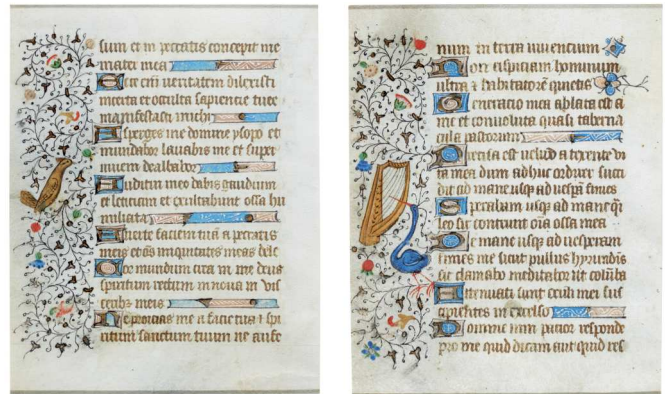 sum et in peccatis concepit me
mater mea
cce eni veritatem dilexisti
incerta et occulta sapiencie tue
manifestasti michi
sperges me domine ysopo et
mundabor lavabis me et super
nivem dealbabor
uditui meo dabis gaudium
et leticiam et exultabunt ossa hu
miliata
verte faciem tua a peccatis
meis et oes iniquitates meas dele
or mundum crea in me deus
spiritum rectum in nova in vis
ceribz meis
e proicias me a facie tua et spi
ritum sanctum tuum ne aufe
num in terra viventium
on aspiciam hominum
ultra et habitatore quietis
eneracio mea ablata est a
me et convoluta quasi taberna
cula pastorum
recisa est velud a texente vi
ta mea dum adhuc ordirer succi
dit me de mane usqz ad vespa finies
perabam usqz ad mane qi
leo sic contrivit oia ossa mea
e mane usqz ad vesperam
finies me sicut pullus
sic clamabo meditabor ut coluba
ttenuati sunt oculi mei sus
picientes in excelso
omine vim patior responde
pro me quid dicam aut quid res